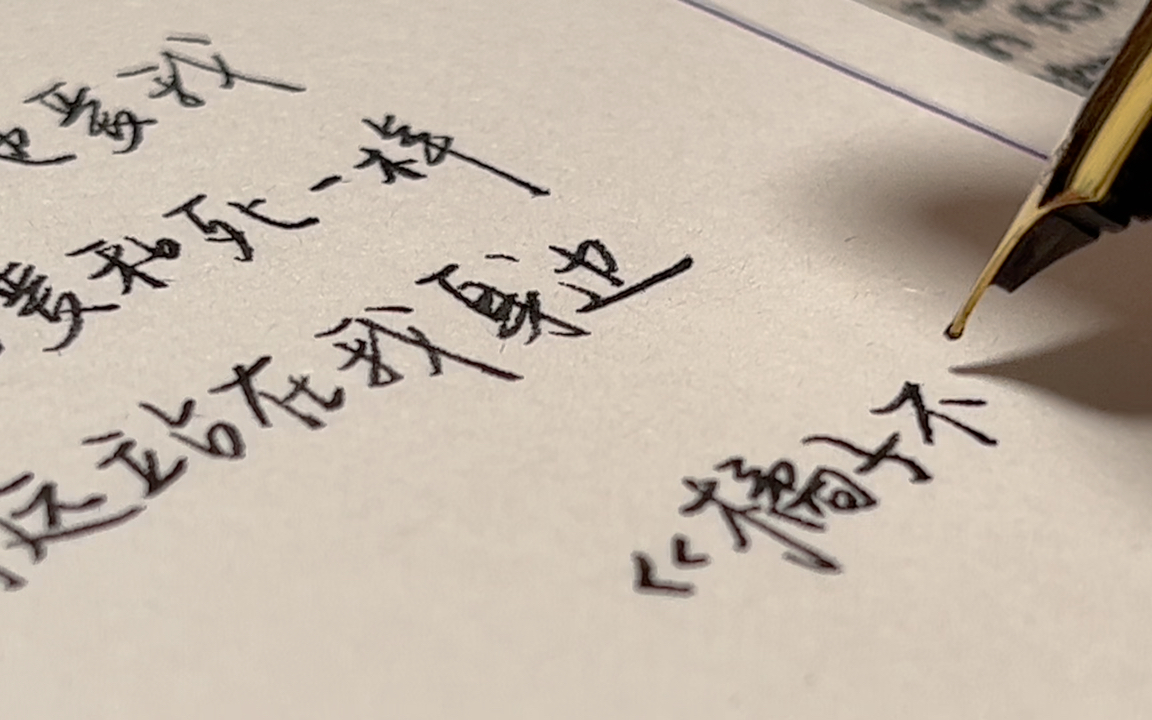 地爱我
爱和死一样
远站在我身边
《橘子不